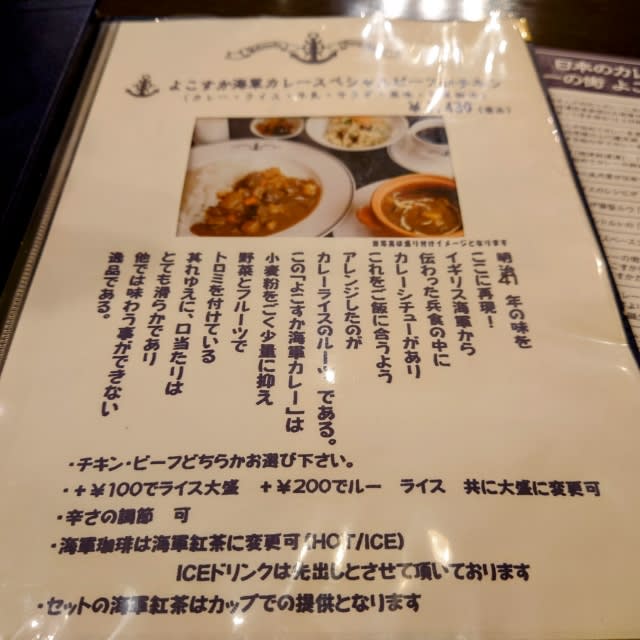 よこすか海軍カレースペシャル
写真は盛り付けイメージとなります
明治41年の味を
ここに再現！
イギリス海軍から
伝わった兵食の中に
カレーシチューがあり
これをご飯に合うよう
アレンジしたのが
カレーライスのルーツである。
この「よこすか海軍カレー」は
小麦粉をごく少量に抑え
野菜とフルーツで
トロミを付けている
其れゆえに、口当たりは
とても滑らかであり
他では味わう事ができない
逸品である。
・チキン・ビーフどちらかお選び下さい。
・＋￥100でライス大盛　＋￥200でルー　ライス　共に大盛に変更可
・辛さの調節　可
・海軍珈琲は海軍紅茶に変更可(HOT/ICE)
ICEドリンクは先出しとさせて頂いております
・セットの海軍紅茶はカップでの提供となります
日本のカ
の街 よこ